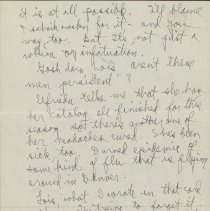 it is at all possible. I'll blame
Tschaikowsky for it - and you
way, too. But it's not just a
whim or infatuation.
Gosh darn, Lois aren't these
men persistent?
Alfreda tells me that she has
her catalog all finished for this
season and there's another one of
her headaches cured. She's been
sick, too. Darned epidemic of
some kind of flu that is flying
around in Denver.
Lois, what I wrote in that card
trying to forget it